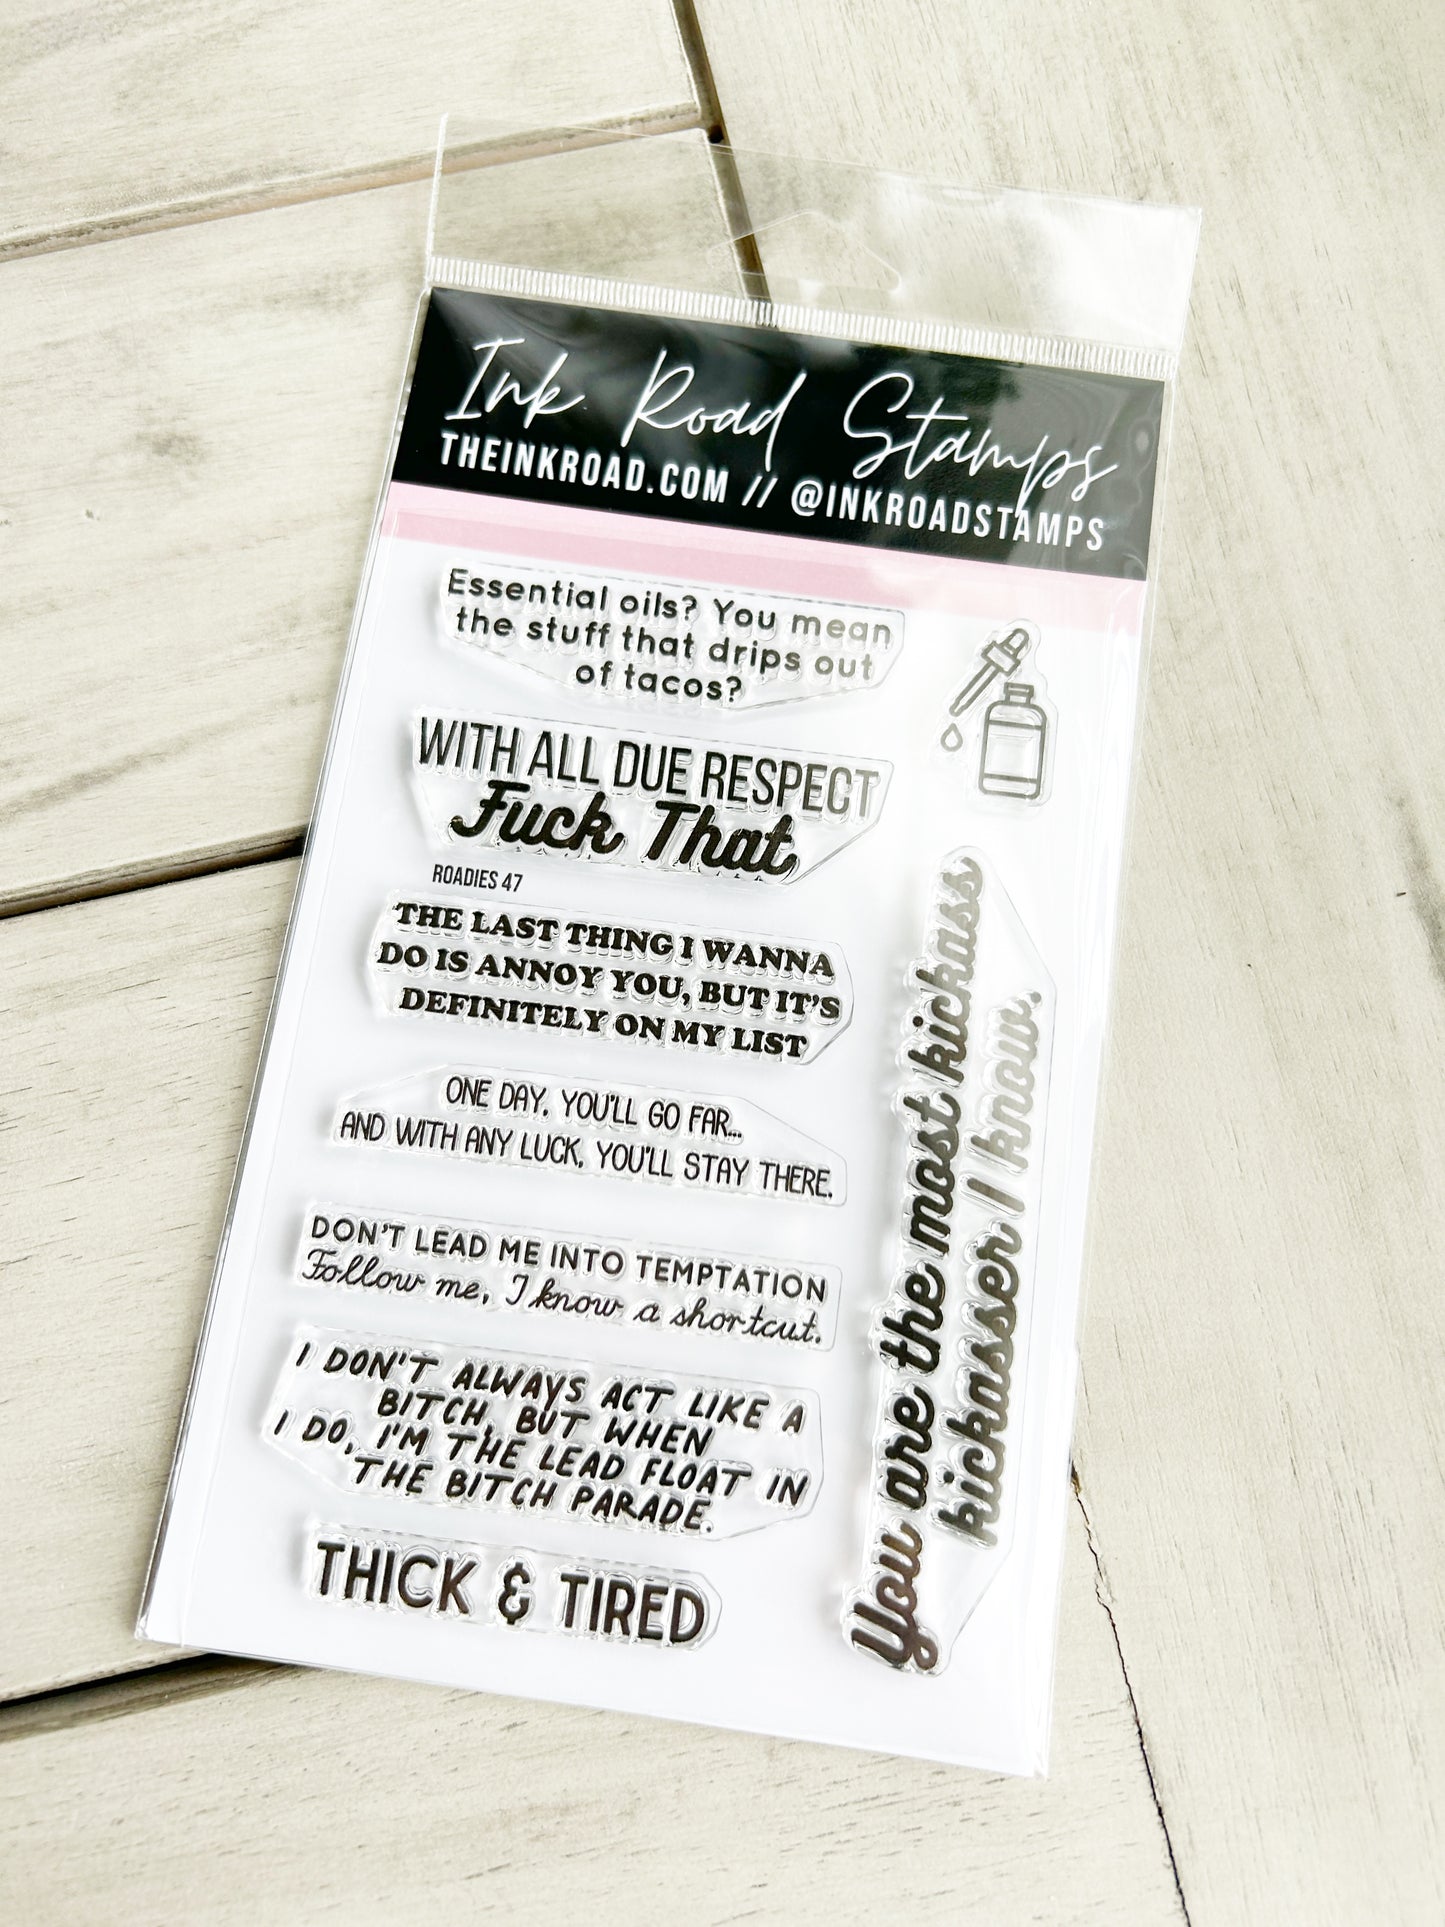 Ink Road Stamps
THEINKROAD.COM // @INKROADSTAMPS
Essential oils? You mean
the stuff that drips out
of tacos?
WITH ALL DUE RESPECT
Fuck That
ROADIES 47
THE LAST THING I WANNA
DO IS ANNOY YOU, BUT IT'S
DEFINITELY ON MY LIST
ONE DAY, YOU'LL GO FAR...
AND WITH ANY LUCK, YOU'LL STAY THERE.
DON'T LEAD ME INTO TEMPTATION
Follow me, I know a shortcut.
I DON'T ALWAYS ACT LIKE A
BITCH, BUT WHEN
I DO, I'M THE LEAD FLOAT IN
THE BITCH PARADE.
THICK & TIRED
You are the most kickass
kickasser I know.